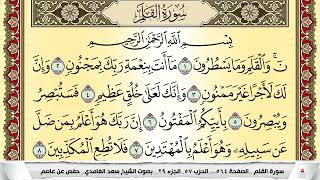 سُورَةُ القَلَمِ
بِسْمِ اللَّهِ الرَّحْمَٰنِ الرَّحِيمِ
نٓ ۚ وَالْقَلَمِ وَمَا يَسْطُرُونَ ١ مَا أَنتَ بِنِعْمَةِ رَبِّكَ بِمَجْنُونٍ ٢ وَإِنَّ
لَكَ لَأَجْرًا غَيْرَ مَمْنُونٍ ٣ وَإِنَّكَ لَعَلَىٰ خُلُقٍ عَظِيمٍ ٤ فَسَتُبْصِرُ
وَيُبْصِرُونَ ٥ بِأَييِّكُمُ الْمَفْتُونُ ٦ إِنَّ رَبَّكَ هُوَ أَعْلَمُ بِمَن ضَلَّ
عَن سَبِيلِهِ وَهُوَ أَعْلَمُ بِالْمُهْتَدِينَ ٧ فَلَا تُطِعِ الْمُكَذِّبِينَ ٨
سورة القلم الصفحة ٥٦٤ الحزب ٥٧ الجزء ٢٩ بصوت الشيخ سعد الغامدي . حفص عن عاصم 4